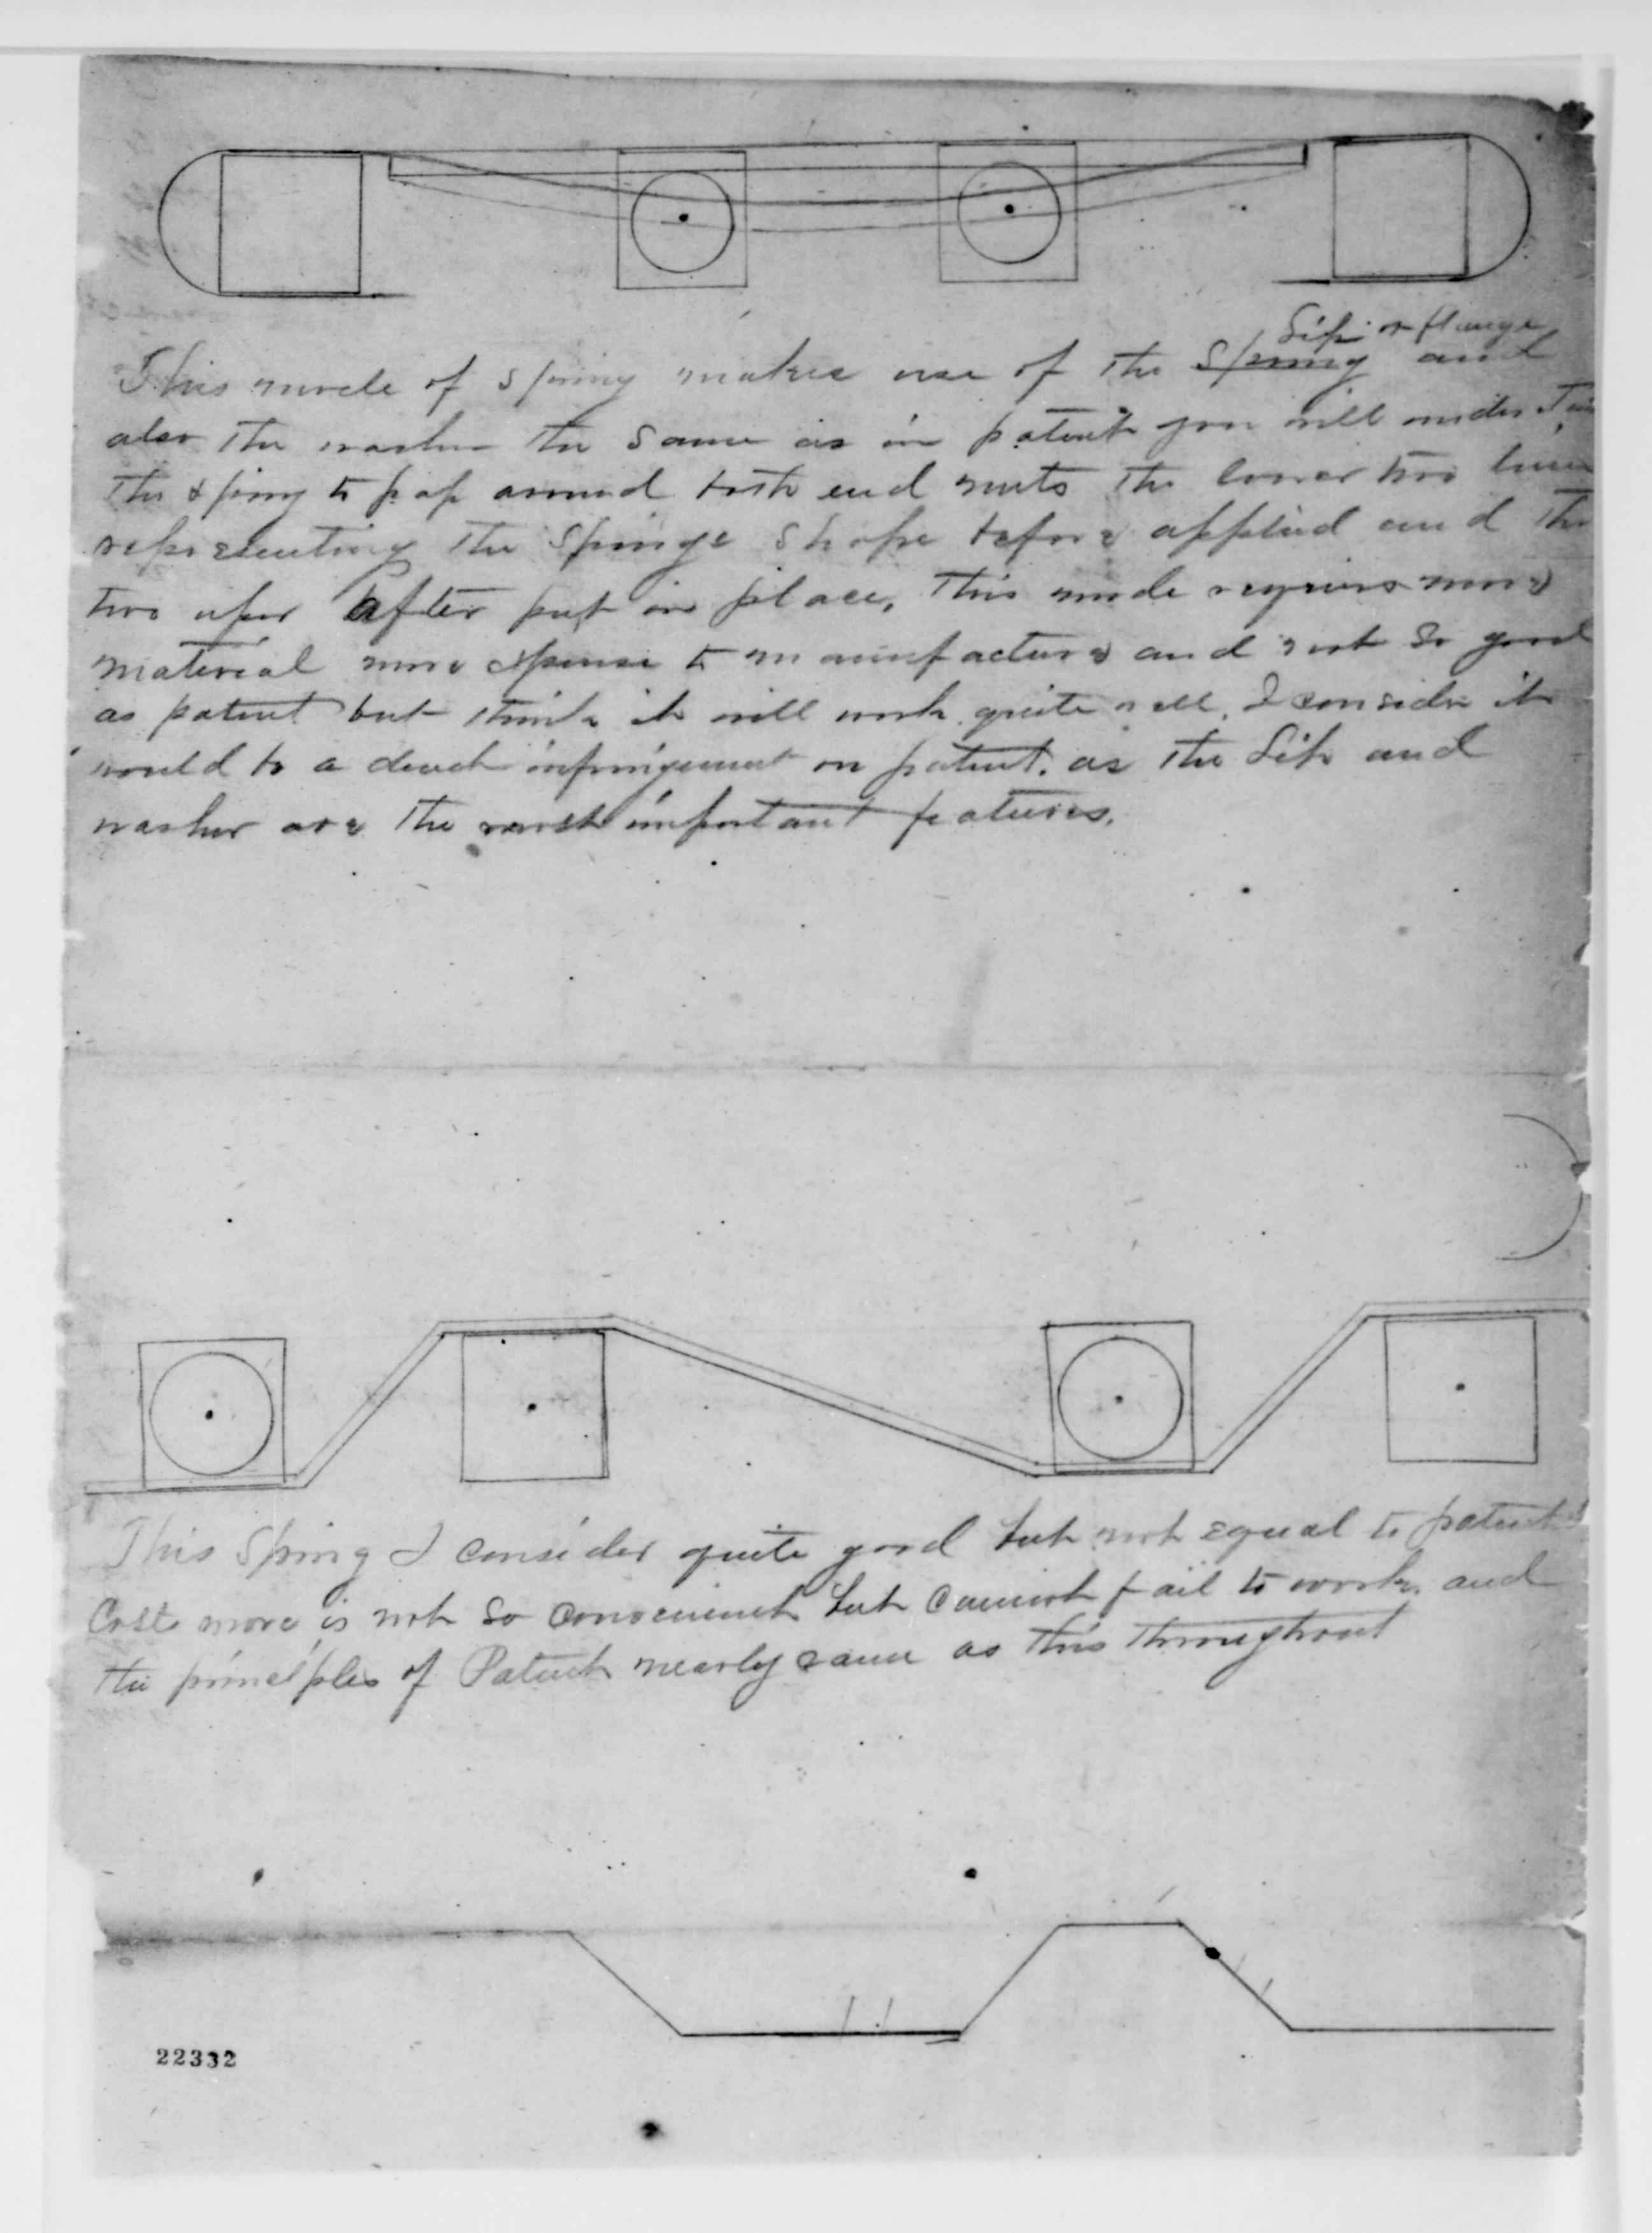 Lip or flange
This mode of spring makes use of the Spring and
also the washer the same as in patent you will understan
the spring to pap around both end nuts the lower two lines
representing the springs shape before applied and the
two uper after put in place, This mode requiers more
material more expense to manufacture and not so good
as patent but think it will work quite well. I consider it
would be a direct infringement on patent. as the Lip and
washer are the most important features.
This Spring I consider quite good but not equal to patent
Costs more is not so convenient but cannot fail to work. and
the principles of Patent nearly same as this throughout
22332